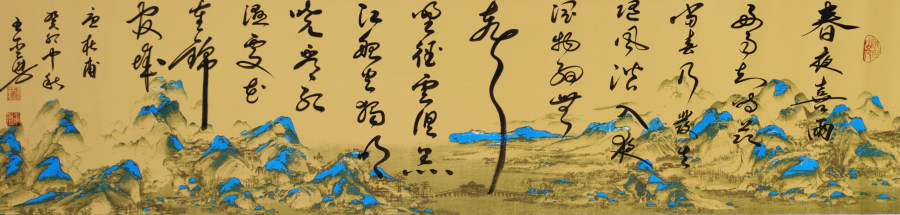 春夜喜雨
好雨知時節
當春乃發生
隨風潛入夜
潤物細無
聲
野徑雲俱黑
江船火獨明
曉看紅
濕處花
重錦
官城
唐杜甫
癸卯中秋
王雲